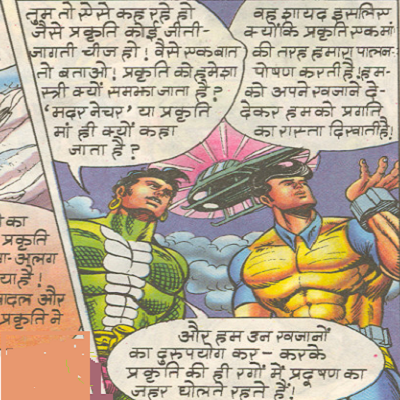 तुम तो ऐसे कह रहे हो
जैसे प्रकृति कोई जीती-
जागती चीज हो! वैसे एक बात
तो बताओ! प्रकृति को हमेशा
स्त्री क्यों समझा जाता है?
'मदर नेचर' या प्रकृति
मां ही क्यों कहा
जाता है?
वह शायद इसलिए
क्योंकि प्रकृति एक मां
की तरह हमारा पालन-
पोषण करती है! हम-
को अपने खजाने दे-
देकर हमको प्रगति
का रास्ता दिखाती है!
का
प्रकृति
अलग
या है!
बादल और
प्रकृति ने
और हम उन खजानों
का दुरुपयोग कर-करके
प्रकृति की ही रगों में प्रदूषण का
जहर घोलते रहते हैं!